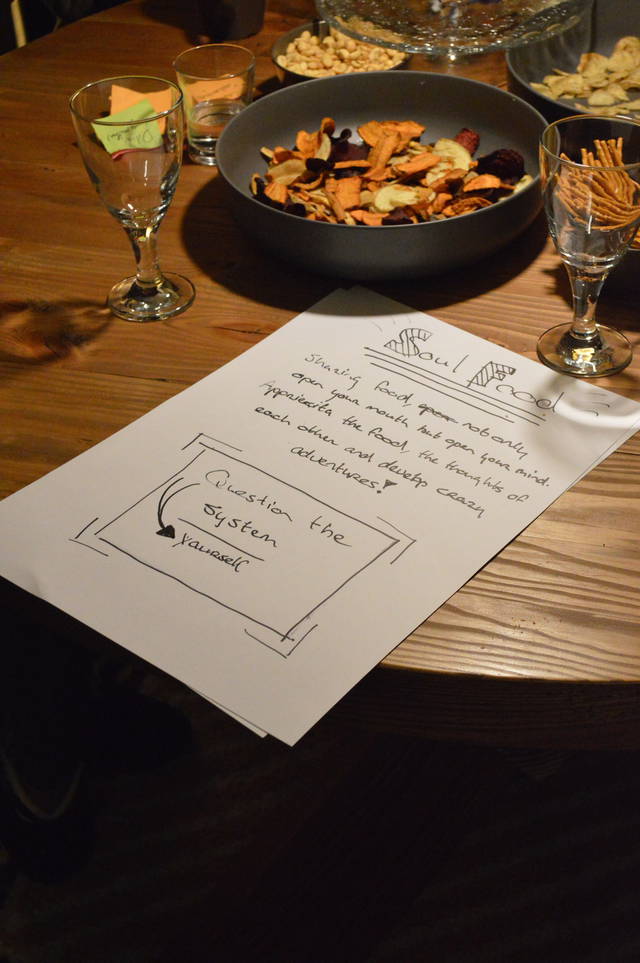 Soul Food
Sharing food, not only
open your mouth but open your mind.
Appriecita the food, the thoughts of
each other and develop crazy
adventures!
Question the
system
yourself